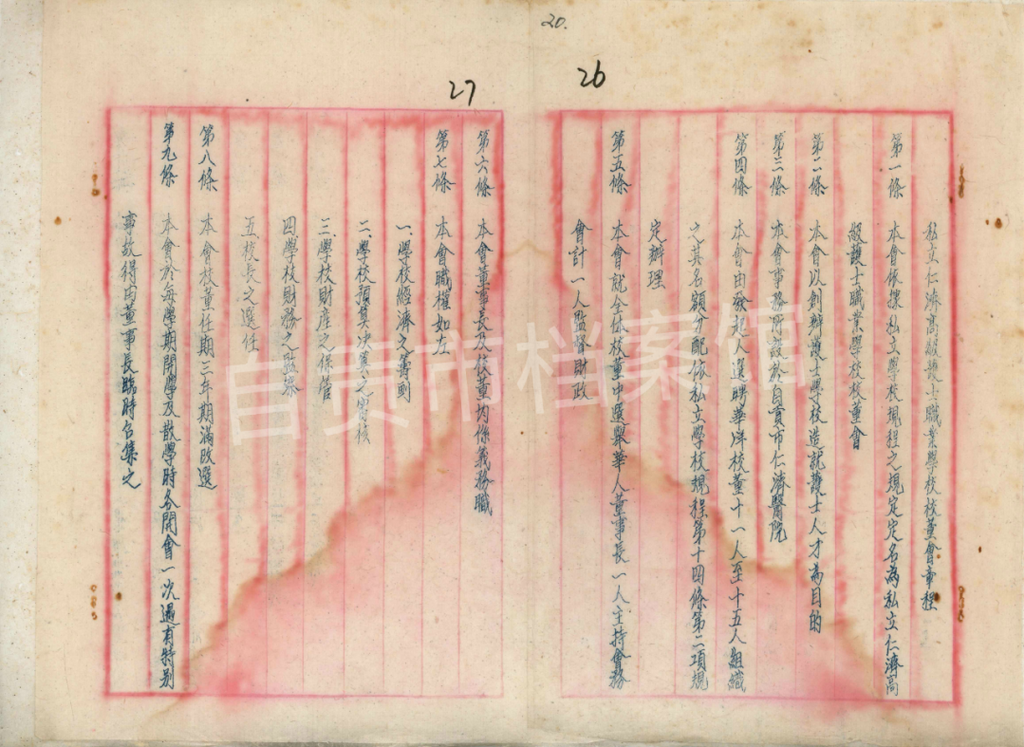 20.
26
私立仁濟高級護士職業學校校董會章程
第一條 本會依據私立學校規程之規定定名為私立仁濟高
級護士職業學校校董會
第二條 本會以創辦護士學校造就護士人才為目的
第三條 本會事務所設於自貢市仁濟醫院
第四條 本會由發起人選聘華洋校董十一人至十五人組織
之其名額分配依私立學校規程第十四條第二項規
定辦理
第五條 本會就全体校董中選舉華人董事長一人主持會務
會計一人監督財政
27
第六條 本會董事長及校董均係義務職
第七條 本會職權如左
一.學校經濟之籌劃
二.學校預算決算之審核
三.學校財產之保管
四學校財務之監察
五校長之選任
第八條 本會校董任期三年期滿改選
第九條 本會於每學期開學及散學時各開會一次遇有特別
事故得由董事長臨時召集之
自贡市档案馆